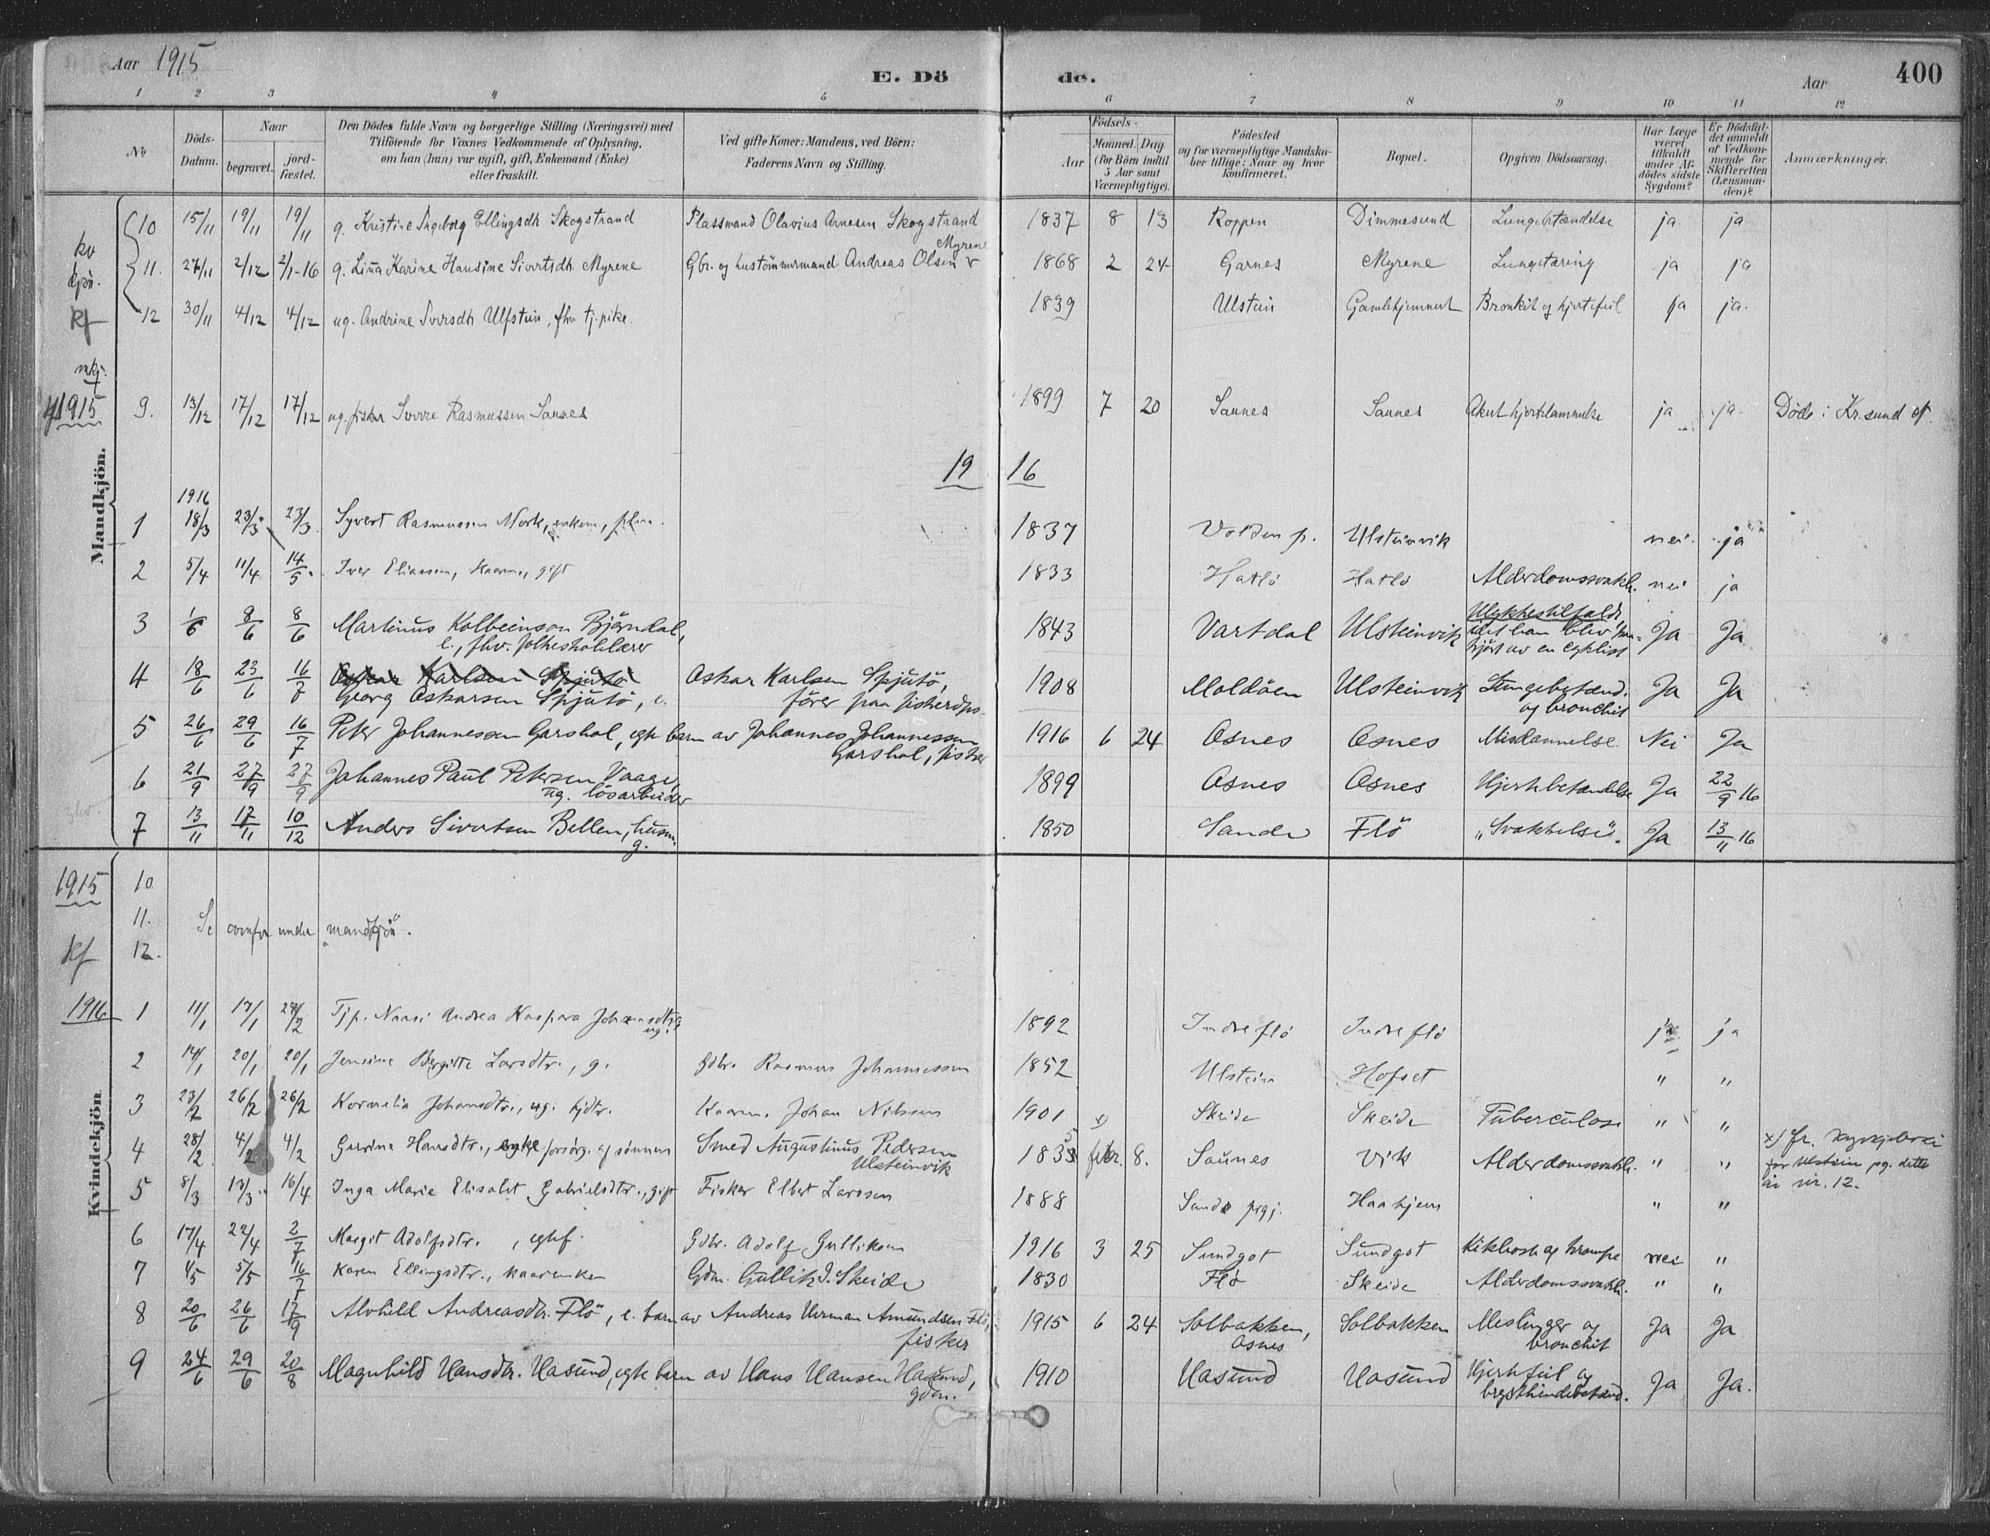 Aar 1915
E. Dö de.
Aar 400
1 2 3 4 5 6 7 8 9 10 11 12
No
Döds-Datum.
Naar
begravet.
jord-fæstet.
Den Dödes fulde Navn og borgerlige Stilling (Næringsvei) med
Tilföiende for Voxnes Vedkommende af Oplysning,
om han (hun) var ugift, gift, Enkemand (Enke)
eller fraskilt.
Ved gifte Koner: Mandens, ved Börn:
Faderens Navn og Stilling.
Födsels-
Aar
Maaned. Dag
(for Börn indtil
5 Aar samt
Værnepligtige).
Födested
og for værnepligtige Mandska-
ber tillige: Naar og hvor
konfirmeret.
Bopæl.
Opgiven Dödsaarsag.
Har Læge
været
tilkaldt
under Af-
dödes sidste
Sygdom?
Er Dödsfal-
det anmeldt
af Vedkom-
mende for
Skifteretten
(Lensman-
den)?
Anmærkninger.
kv
kjøn.
kf
10 15/11 19/11 19/11 g. Kristine Ingeborg Ellingsdtr Skogstrand Plassmand Olavius Arnesen Skogstrand 1837 8 13 Roppen Dimmesund Lungebetændelse ja ja
Myrene
11. 27/11 2/12 2/1-16 g. Lina Karine Hansine Sivertsdtr Myrene Gbr. og hustømmermand Andreas Olsen 1868 2 24 Garnes Myrene Lungetæring ja ja
12 30/11 4/12 4/12 ug. Andrine Iversdtr Ulfstein, fhv tj.pike. 1839 Ulstein Gamlehjemmet Bronkit og hjertefeil ja ja.
mkj.
1915 9. 13/12 17/12 17/12 ug. fisker Sverre Rasmussen Saunes 1899 7 20 Saunes Saunes Akut hjertelammelse ja ja. Døde i Kr.sund
19 16
Mandkjön.
1916
1 18/3 23/3 23/3 Syvert Rasmussen Mork, enkem., 1837 Volden p. Ulsteinvik nei ja
2 5/4 11/4 14/5 Iver Eliassen, Kaarm., gift 1833 Hatlö Hatlö Alderdomssvakh. nei ja
3 1/6 8/6 8/6 Martinus Kolbeinson Bjørndal, 1843 Vartdal Ulsteinvik Ulykkestilfælde, Ja Ja
e., fhv. folkeskolelærer idet han blev paa-
kjørt av en cyklist
4 18/6 23/6 16/7 Oskar Karlsen Spjutö Oskar Karlsen Spjutö, 1908 Moldöen Ulsteinvik Lungebetænd. Ja Ja
Georg Oskarsen Spjutö, e. fører paa fiskerdps. og bronchit
5 26/6 29/6 16/7 Peter Johannessen Garshol, egte barn av Johannes Johannessen 1916 6 24 Osnes Osnes Misdannelse. Nei Ja
Garshol, fisker
6 21/9 27/9 27/9 Johannes Paul Petersen Vaage, 1899 Osnes Osnes Hjertebetændelse Ja 22/9 16
ug. lösarbeider
7 13/11 17/11 10/12 Anders Sivertsen Bellen, husm. 1850 Sande Flö "Svækkelse". Ja 13/11 16
g.
1915 10
11. Se ovenfor under "mandkjøn".
12.
kf
Kvindekjön
1916 1 11/1 17/1 27/2 Tjp. Naasi Andrea Kaspara Johansdtr 1892 Indreflö Indreflö ja ja
ug.
2 14/1 20/1 20/1 Jensine Bergitte Larsdtr., g. Gdbr. Rasmus Johannessen 1852 Ulstein Hofset " "
3 23/2 26/2 26/2 Kornelia Johansdtr., ug. Kaarm. Johan Nilssen 1901 x) Skeide Skeide Tuberculose " "
4 28/2 4/2 4/2 Gurine Hansdtr., enke forsörg. af sönnen Smed Augustinus Pedersen 1835 febr. 8. Saunes Vik Alderdomssvakh. " " x) fr. kyrkjeboki
Ulsteinvik for Ulstein pg. dette
aar nr. 12.
5 8/3 13/3 16/4 Inga Marie Elisabet Gabrielsdtr., gift Fisker Elbert Larssen 1888 Sande prgj. Haahjem " "
6 17/4 22/4 2/7 Margit Adolfsdtr., egtef. Gdbr. Adolf Gulliksen 1916 3 25 Sundgot Sundgot Kikhoste og krampe nei "
7 1/5 5/5 16/7 Karen Ellingsdtr., kaarenke Gdm. Gullik J. Skeide 1830 Flö Skeide Alderdomssvakh. " "
8 20/6 26/6 17/9 Alvhild Andreasdtr. Flö, e. barn av Andreas Herman Amundsen Flö, 1915 6 24 Solbakken, Solbakken Meslinger og Ja Ja
fisker Osnes bronchit
9 24/6 29/6 20/8 Magnhild Hansdtr. Hasund, egte barn av Hans Hansen Hasund, 1910 Hasund Hasund Hjertefeil og Ja Ja.
gdm. brysthindebetænd.